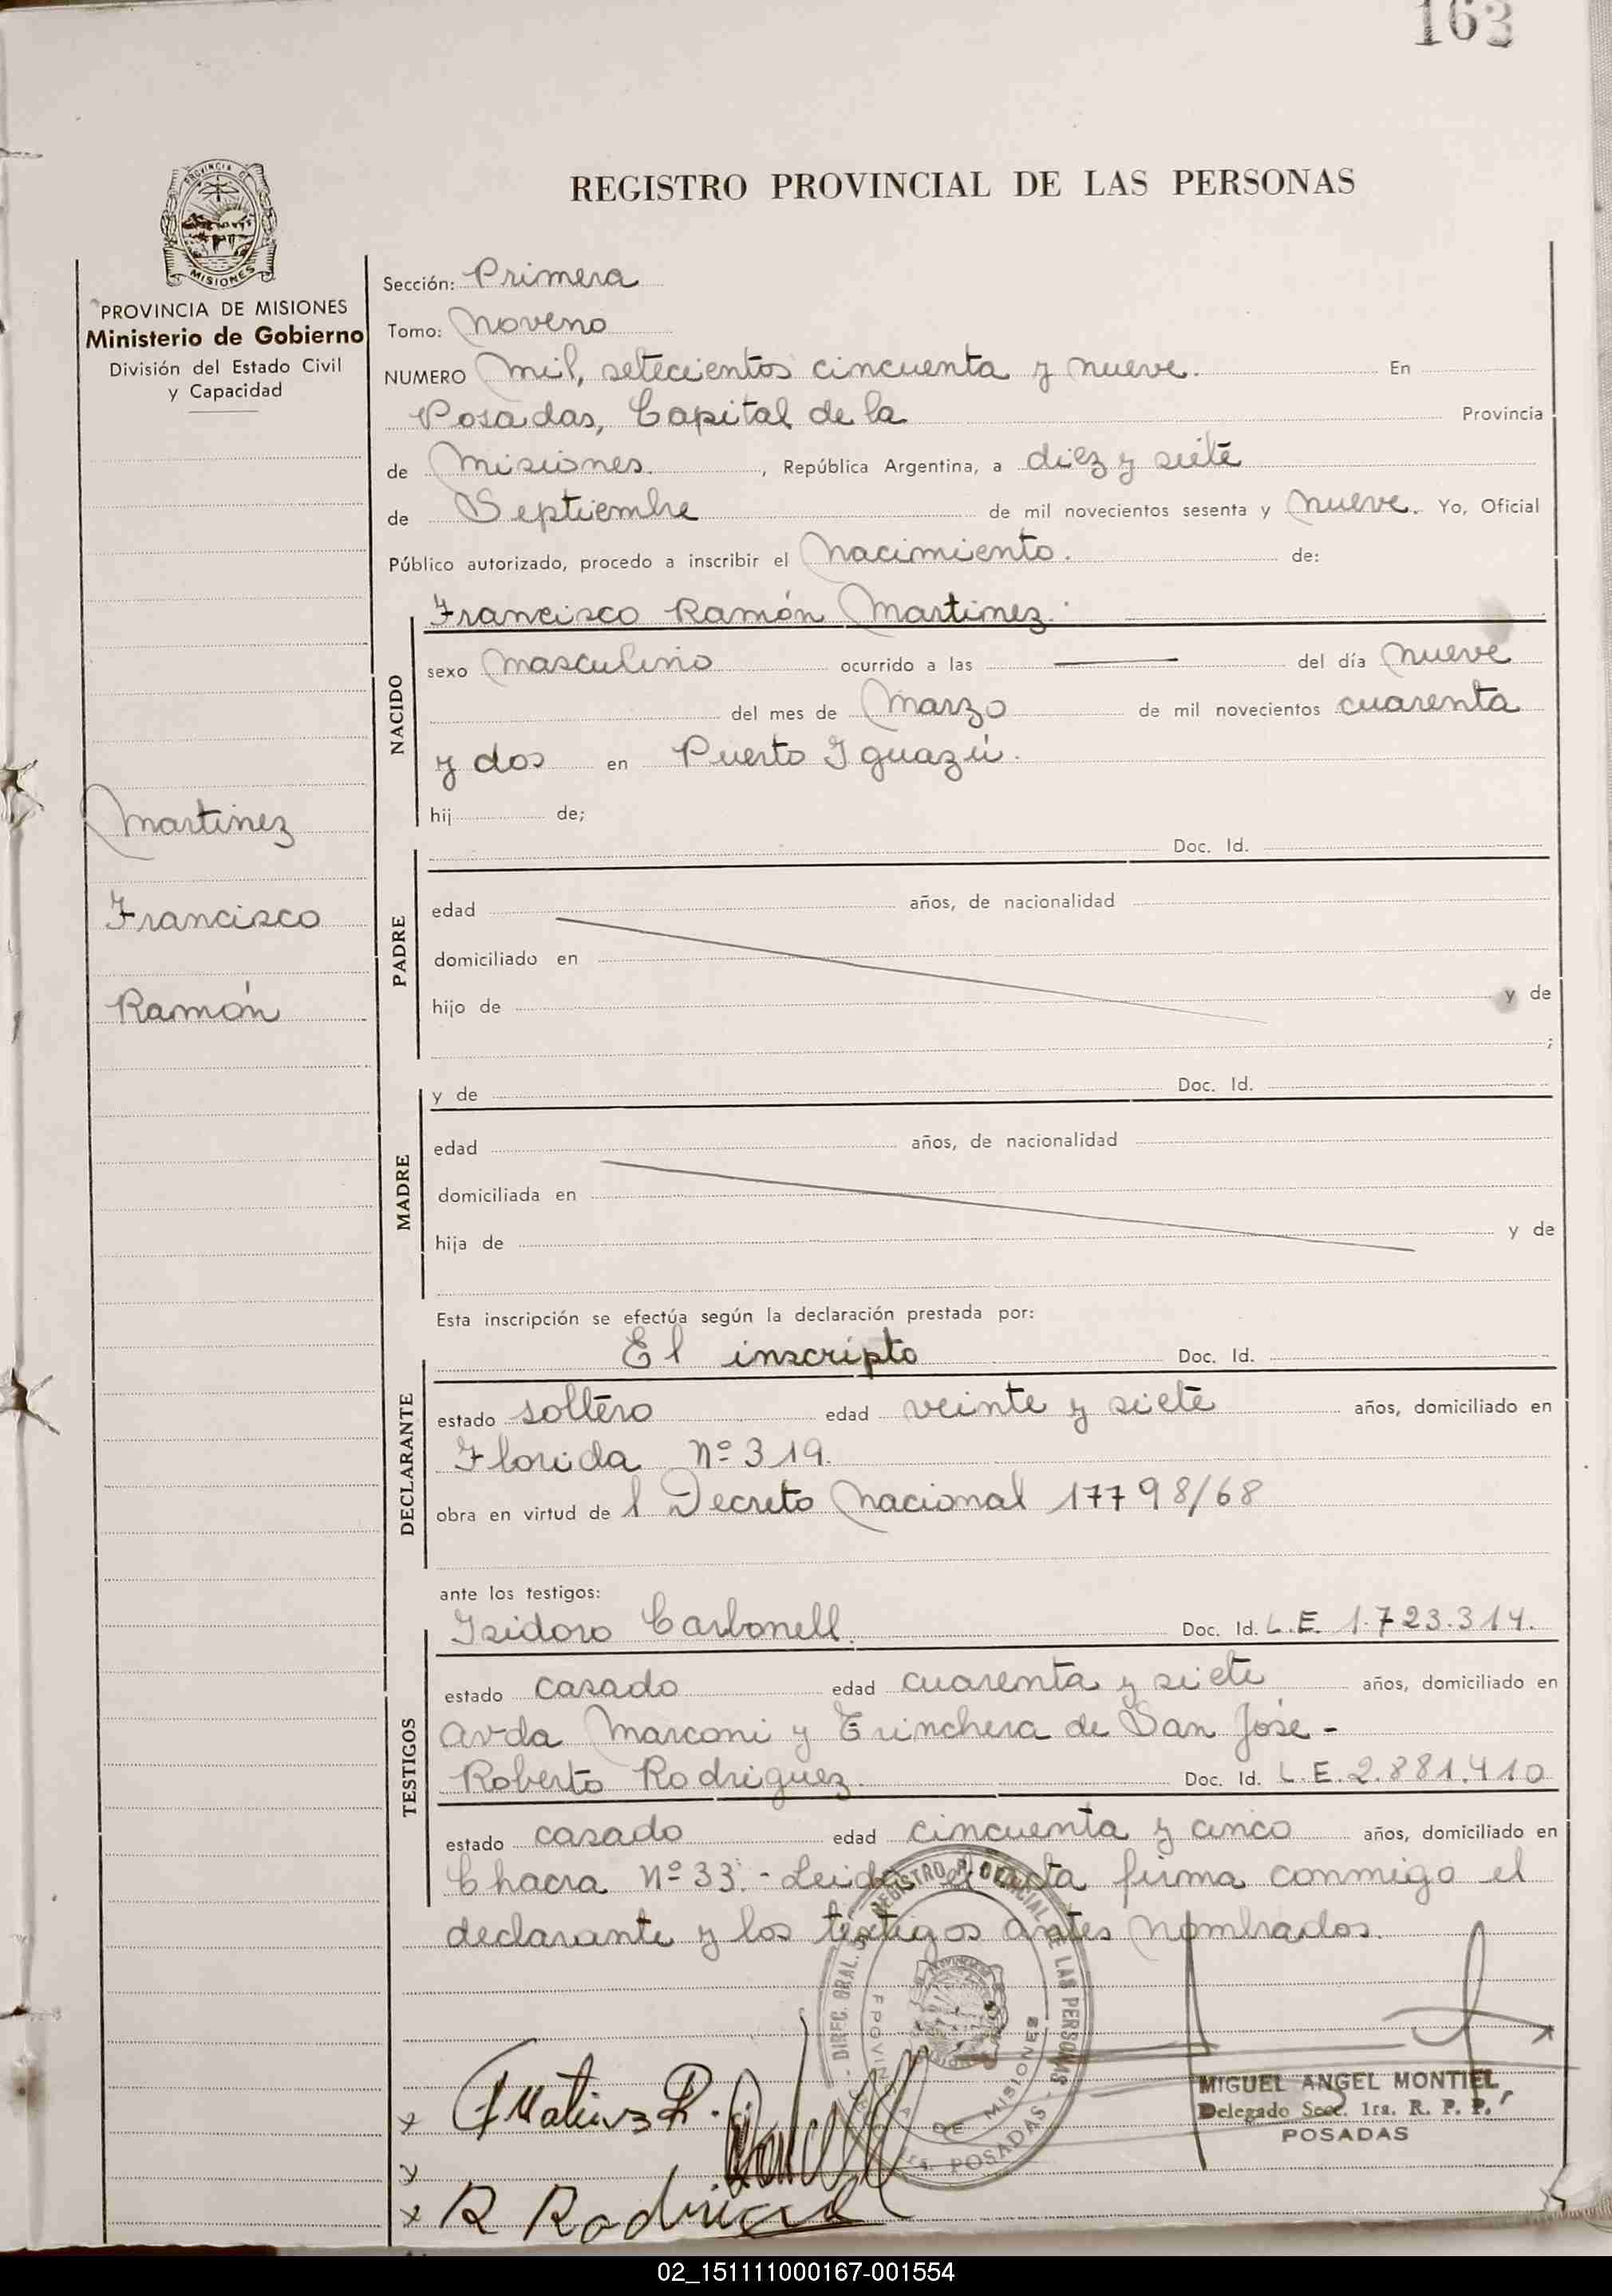 163
REGISTRO PROVINCIAL DE LAS PERSONAS
PROVINCIA DE MISIONES
Ministerio de Gobierno
División del Estado Civil
y Capacidad
Martinez
Francisco
Ramón
Sección: Primera
Tomo: Noveno
NUMERO Mil, setecientos cincuenta y nueve. En
Posadas, Capital de la Provincia
de Misiones. , República Argentina, a diez y siete
de Septiembre de mil novecientos sesenta y nueve. Yo, Oficial
Público autorizado, procedo a inscribir el Nacimiento. de:
Francisco Ramón Martinez.
NACIDO
sexo Masculino ocurrido a las — del día nueve
del mes de Marzo de mil novecientos cuarenta
y dos en Puerto Iguazú.
hij de;
Doc. Id.
PADRE
edad años, de nacionalidad
domiciliado en
hijo de y de
;
y de Doc. Id.
MADRE
edad años, de nacionalidad
domiciliada en
hija de y de
Esta inscripción se efectúa según la declaración prestada por:
El inscripto Doc. Id.
DECLARANTE
estado soltero edad veinte y siete años, domiciliado en
Florida Nº 319.
obra en virtud de l Decreto Nacional 17798/68
ante los testigos:
Isidoro Carbonell. Doc. Id. L.E. 1.723.314.
TESTIGOS
estado casado edad cuarenta y siete años, domiciliado en
Avda Marconi y Trinchera de San José -
Roberto Rodriguez. Doc. Id. L.E. 2.881.410
estado casado edad cincuenta y cinco años, domiciliado en
Chacra Nº 33. - Leida el acta firma conmigo el
declarante y los testigos antes nombrados.
REGISTRO PROVINCIAL DE LAS PERSONAS
PROVINCIA DE MISIONES
POSADAS
MIGUEL ANGEL MONTIEL
Delegado Secc. 1ra. R. P. P.
POSADAS
R Rodriguez
02_151111000167-001554